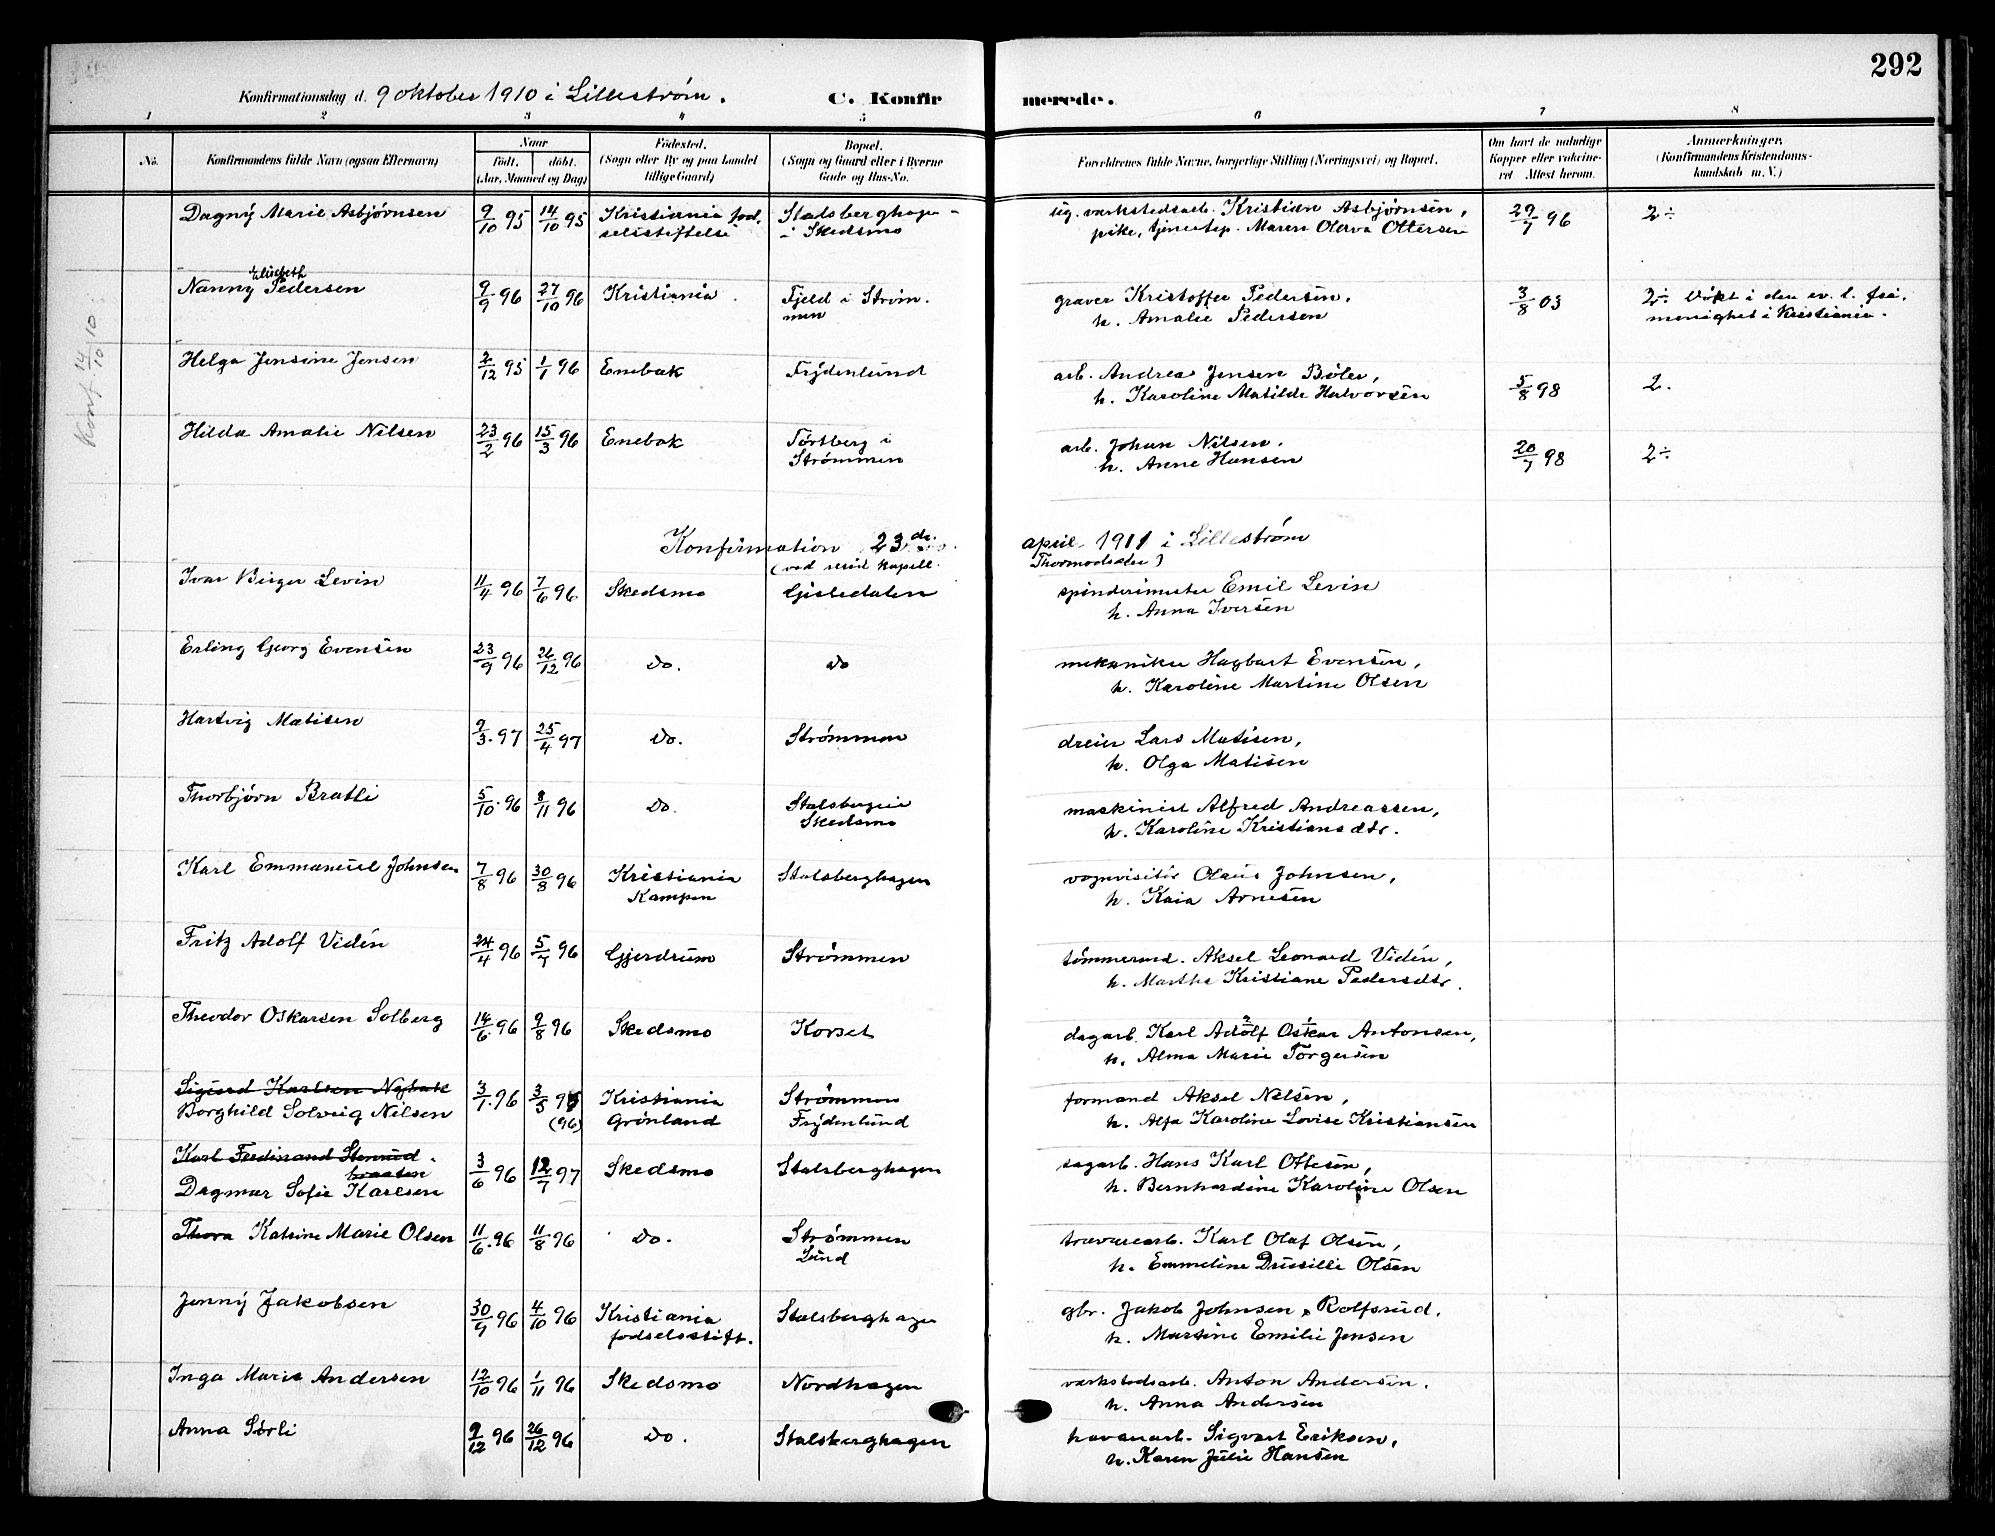 292
Konfirmationsdag d. 9 oktober 1910 i Lilleström. C. Konfirmerede.
1 2 3 4 5 6 7 8
No. Konfirmandens fulde Navn (ogsaa Efternavn) Naar født, døbt. (Aar, Maaned og Dag) Fødested. (Sogn eller By og paa Landet tillige Gaard) Bopæl. (Sogn og Gaard eller i Byerne Gade og Hus-No. Forældrenes fulde Navne, borgerlige Stilling (Næringsvei) og Bopæl. Om havt de naturlige Kopper eller vaksineret Attest herom. Anmærkninger, (Konfirmandens Kristendomskundskab m. V.)
Konf. 14/10 10:
Dagny Marie Asbjørnsen 9/10 95 14/10 95 Kristiania fødselsstiftelse Stalsberghagen i Skedsmo ug. værkstedsarb. Kristian Asbjørnsen, pike, tjenestep. Maren Oleva Ottersen 29/7 96 2÷
Nanny Elisabeth Pedersen 9/9 96 27/10 96 Kristiania. Fjeld i Strømmen graver Kristoffer Pedersen, h. Amalie Pedersen 3/8 03 2÷ Døpt i den ev. l. frimenighet i Kristiania.
Helga Jensine Jensen 2/12 95 1/1 96 Enebak Frydenlund arb. Andreas Jensen Bøler, h. Karoline Matilde Halvorsen 5/8 98 2.
Hilda Amalie Nilsen 23/2 96 15/3 96 Enebak Tørtberg i Strømmen arb. Johan Nilsen. h. Anne Hansen 20/7 98 2÷
Konfirmation 23de april 1911 i Lilleström
(ved resid. kapell. Thormodsæter)
Ivar Birger Levin 11/4 96 7/6 96 Skedsmo Gjeledalen spinderimester Emil Levin h. Anna Iversen
Erling Georg Evensen 23/9 96 26/12 96 Do. Do mekaniker Hagbart Evensen, h. Karoline Martine Olsen
Hartvig Matisen 9/3 97 25/4 97 Do. Strømmen dreier Lars Matisen, h. Olga Matisen
Thorbjørn Bratli 5/10 96 8/11 96 Do. Stalsbergeie Skedsmo maskinist Alfred Andreassen, h. Karoline Kristiansdtr.
Karl Emmanuel Johnsen 7/8 96 30/8 96 Kristiania Kampen Stalsberghagen vognvisitør Olaus Johnsen, h. Kaia Arnesen
Fritz Adolf Vidén 24/4 96 5/7 96 Gjerdrum Strømmen tömmermd. Aksel Leonard Vidén, h. Martha Kristiane Pedersdtr.
Theodor Oskarsen Solberg 14/6 96 9/8 96 Skedsmo Korset dagarb. Karl Adolf Oskar Antonsen, h. Alma Marie Torgersen
Sigurd Karlsen Nybak
Borghild Solveig Nilsen 3/1 96 3/5 95 (96) Kristiania Grönland Strømmen Frydenlund formand Aksel Nilsen, h. Alfa Karoline Lovise Kristiansen
Karl Ferdinand Stenrud braaten
Dagmar Sofie Karlsen 3/6 96 12/7 97 Skedsmo Stalsberghagen sagarb. Hans Karl Ottesen, h. Bernhardine Karoline Olsen
Thora Katrine Marie Olsen 11/6 96 11/8 96 Do. Strømmen Lund trævarearb. Karl Olaf Olsen, h. Emmeline Drusille Olsen
Jenny Jakobsen 30/9 96 4/10 96 Kristiania fødselsstift. Stalsberghagen gbr. Jakob Johnsen Rolfsrud, h. Martine Emilie Jensen
Inga Marie Andersen 12/10 96 1/11 96 Skedsmo Nordhagen værkstedsarb. Anton Andersen. h. Anna Andersen
Anna Sørli 9/12 96 26/12 96 Do. Stalsberghagen havnarb. Sigvart Eriksen, h. Karen Julie Hansen